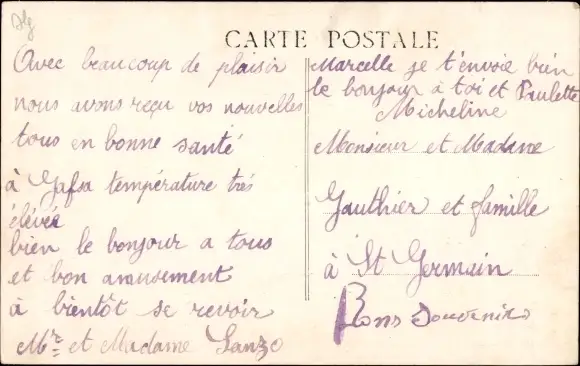 Alg
CARTE POSTALE
Avec beaucoup de plaisir
nous avons reçu vos nouvelles
tous en bonne santé
à Gafsa température trés
élévée
bien le bonjour a tous
et bon amusement
à bientôt se revoir
Mr et Madame Lanzo
Marcelle je t'envoie bien
le bonjour à toi et Paulette
Micheline
Monsieur et Madame
Gauthier et famille
à St Germain
Bons Souvenirs